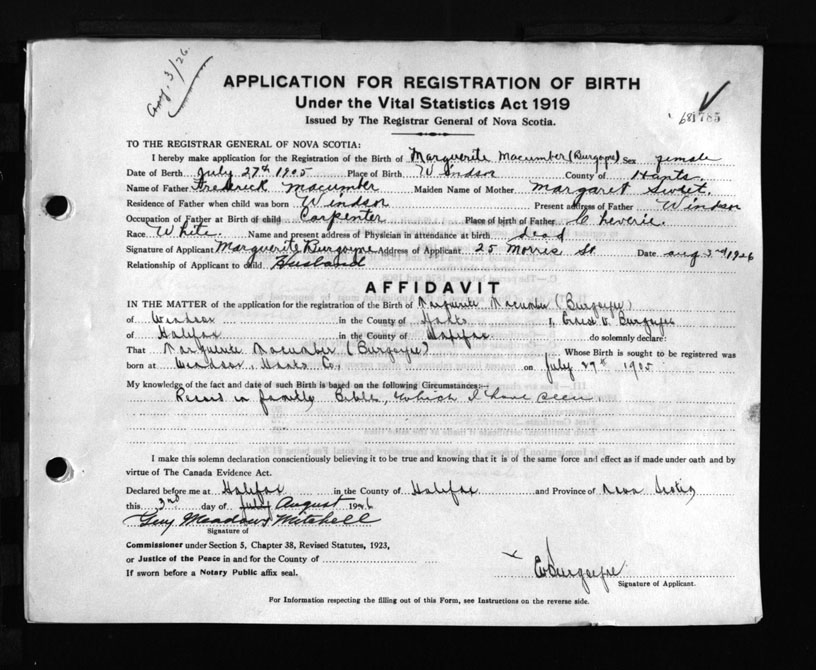 Aug. 3/26.
APPLICATION FOR REGISTRATION OF BIRTH
Under the Vital Statistics Act 1919
Issued by The Registrar General of Nova Scotia.
TO THE REGISTRAR GENERAL OF NOVA SCOTIA:
I hereby make application for the Registration of the Birth of Marguerite Macumber (Burgoyne) Sex female
Date of Birth July 27th 1905 Place of Birth Windsor County of Hants
Name of Father Frederick Macumber Maiden Name of Mother Margaret Sweet.
Residence of Father when child was born Windsor Present address of Father Windsor
Occupation of Father at Birth of child Carpenter Place of birth of Father Cheverie.
Race White Name and present address of Physician in attendance at birth dead
Signature of Applicant Marguerite Burgoyne Address of Applicant 25 Morris St Date Aug 3rd 1926
Relationship of Applicant to child Husband
AFFIDAVIT
IN THE MATTER of the application for the registration of the Birth of Marguerite Macumber (Burgoyne)
of Windsor in the County of Hants I, Ernest V. Burgoyne
of Halifax in the County of Halifax do solemnly declare:
That Marguerite Macumber (Burgoyne) Whose Birth is sought to be registered was
born at Windsor, Hants Co, on July 27th 1905
My knowledge of the fact and date of such Birth is based on the following Circumstances:—
Record in family Bible, which I have seen.
I make this solemn declaration conscientiously believing it to be true and knowing that it is of the same force and effect as if made under oath and by
virtue of The Canada Evidence Act.
Declared before me at Halifax in the County of Halifax and Province of Nova Scotia
this 3rd day of July August 1926
Guy Meadows Mitchell
Signature of
Commissioner under Section 5, Chapter 38, Revised Statutes, 1923,
or Justice of the Peace in and for the County of
If sworn before a Notary Public affix seal.
x EVBurgoyne
Signature of Applicant.
For Information respecting the filling out of this Form, see Instructions on the reverse side.